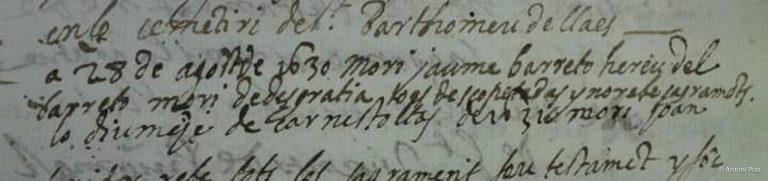 en le semetiri de St. Barthomeu de llaes
a 28 de agost de 1630 mori jaume barreto hereu del
barreto mori de desgratia de escopetadas y no rebe sagramets.
lo diumeje de carnestoltes de 1631 mori Joan
rebe tots los sagrament feu testamet y fõc
© Antoni Prat